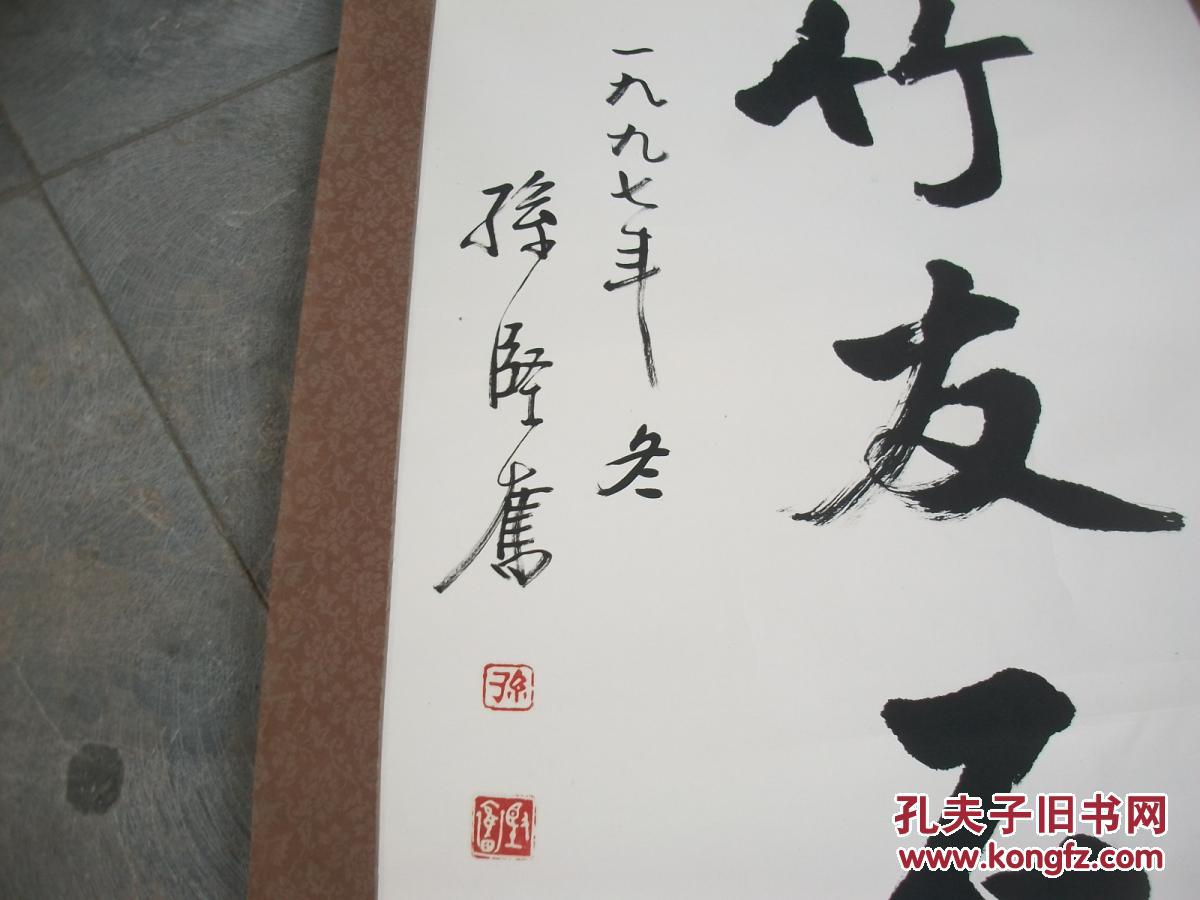 竹友石
一九九七年冬
孫堅奮
孫
堅奮
孔夫子旧书网
www.kongfz.com